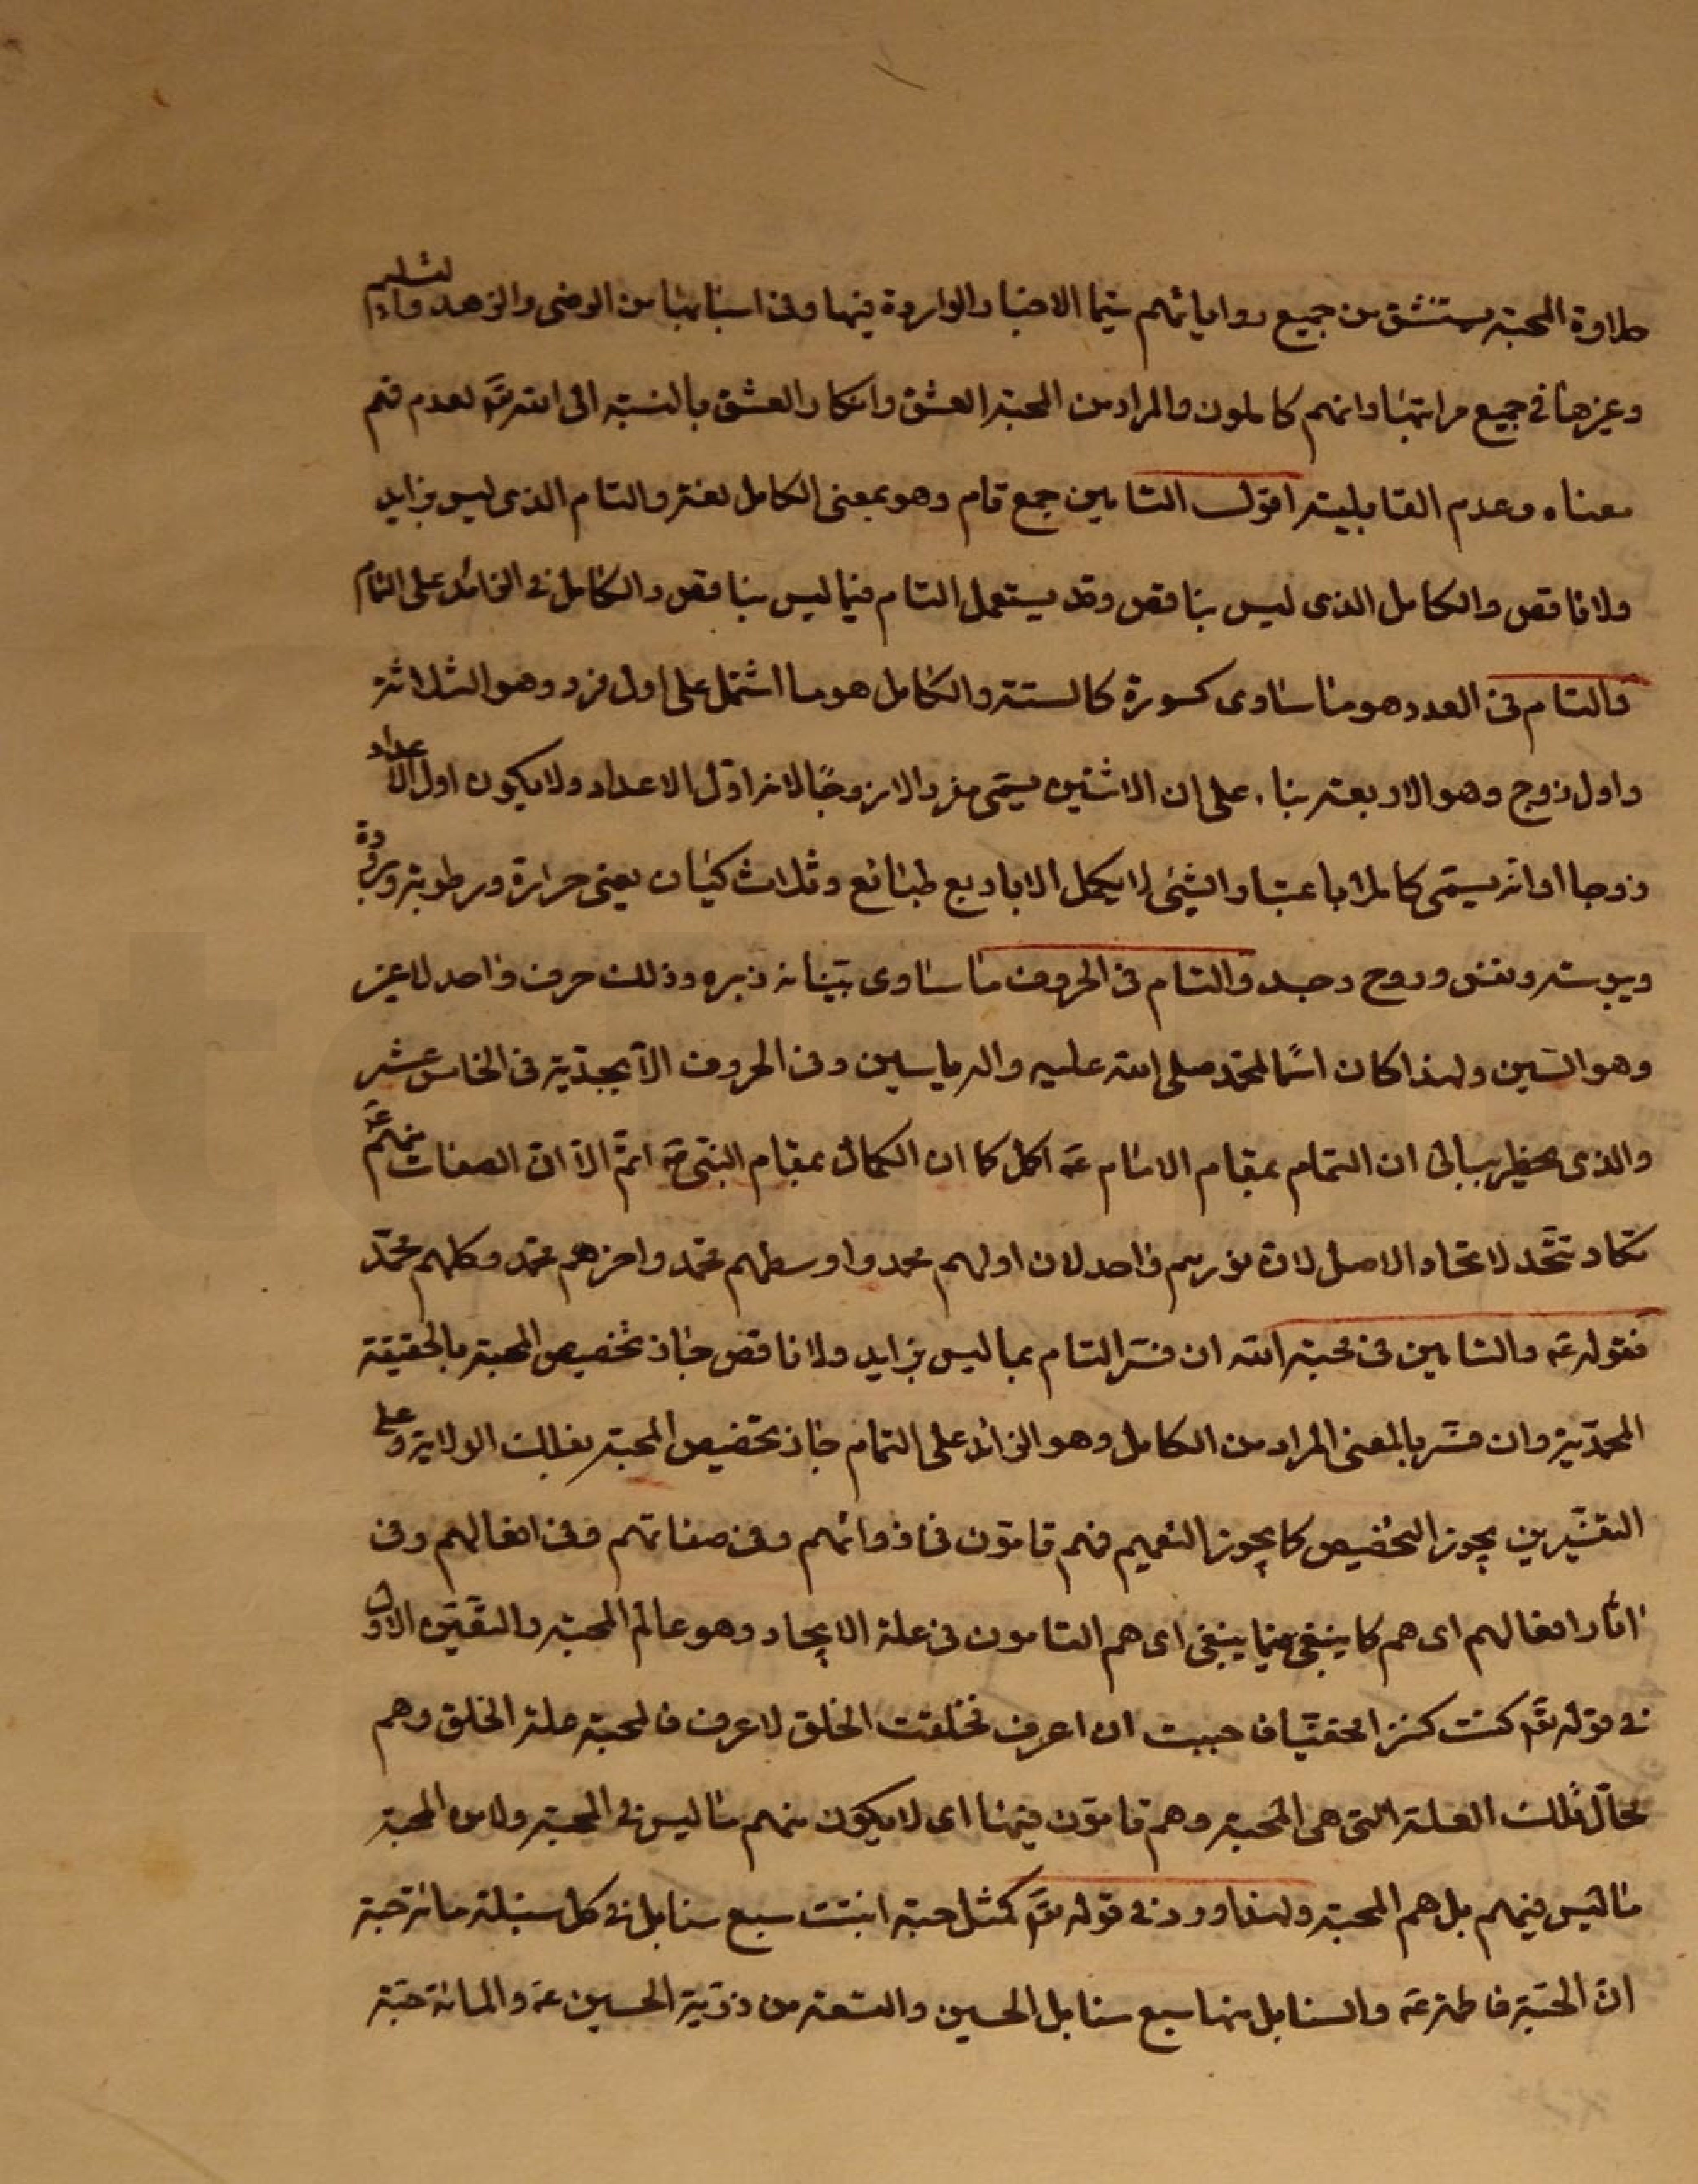 طلاوة المحبة يستنشق من جميع رواياتهم سيما الاخبار الواردة فيها وفى اسبابها من الرضى والزهد والتسليم
وغيرها فى جميع مراتبها وانهم كاملون والمراد من المحبة العشق وانكار العشق بالنسبة الى الله تعَ لعدم فهم
معناه وعدم القابلية اقول التامين جمع تام وهو بمعنى الكامل لغة والتام الذى ليس بزايد
ولا ناقص والكامل الذى ليس بناقص وقد يستعمل التام فيما ليس بناقص والكامل فى الزائد على التمام
والتام فى العدد هو ما ساوى كسوره كالستة والكامل هو ما اشتمل على اول فرد وهو الثلاثة
واول زوج وهو الاربعة بناء على ان الاثنين يسمى مفردا لا زوجًا لانه اوّل الاعداد ولا يكون اول الاعداد
زوجا او انه يسمى كاملا باعتبار الشيئ لا يكمل الا باربع طبائع وثلاث كيان يعنى حرارة ورطوبة وبرودة
ويبوسة ونفس وروح وجسد والتام فى الحروف ما ساوى بيّناته زبره وذلك حرف واحد لا غير
وهو السين ولهذا كان اسمًا لمحمد صلى الله عليه واله ياسين وفى الحروف الابجديّة فى الخامس عشر
والذى يخطر ببالى ان التمام بمقام الامام عَ اكمل كما ان الكمال بمقام النبىّ صَ اتمّ الّا ان الصفات منهم عَ
تكاد تتّحد لاتحاد الاصل لان نورهم واحد لان اولهم محمد واوسطهم محمّد واخرهم محمّد وكلهم محمّد
فقوله عَ والتامين فى محبة الله ان فسّر التام بما ليس بزايد ولا ناقص جاز تخصيص المحبة بالحقيقة
المحمّديّة وان فسّر بالمعنى المراد من الكامل وهو الزائد على التمام جاز تخصيص المحبة بفلك الولاية وعلى
التفسيرين يجوز التخصيص كما يجوز التعميم فهم تامّون فى ذواتهم وفى صفاتهم وفى افعالهم وفى
اثار افعالهم اى هم كما ينبغى فيما ينبغى اى هم التامون فى علة الايجاد وهو عالم المحبة والتعيّن الاوّل
فى قوله تعَ كنت كنزا مخفيّا فاحببت ان اعرف فخلقت الخلق لاعرف فالمحبة علة الخلق وهم
محالّ تلك العلة التى هى المحبة وهم تامّون فيها اى لا يكون منهم ما ليس فى المحبة ولا من المحبة
ما ليس فيهم بل هم المحبة ولهذا ورد فى قوله تعَ كمثل حبة انبتت سبع سنابل فى كل سنبلة مائة حبة
انّ الحبّة فاطمة عَ والسنابل منها سبع سنابل الحسين والتسعة من ذرّية الحسين عَ والمائة حبّة